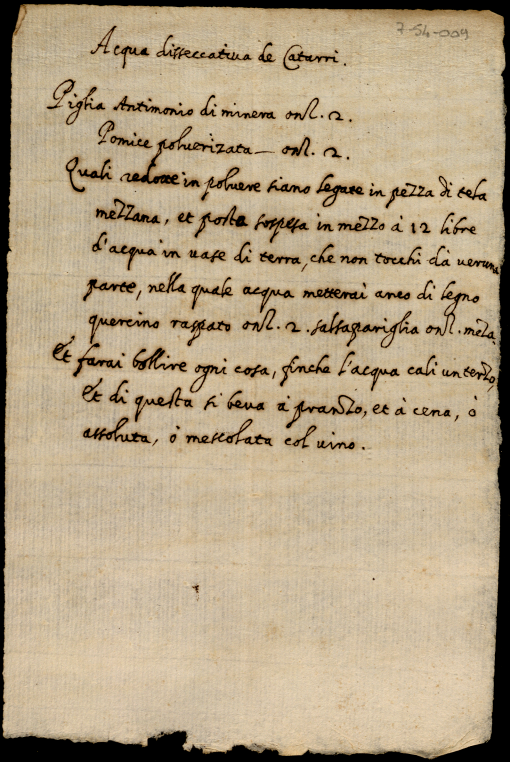 7-54-009
Acqua disseccativa de Catarri.
Piglia Antimonio di minera onz. 2.
Pomice polverizata — onz. 2.
Quali redotte in polvere siano legate in pezza di tela
mezzana, et posta sospesa in mezzo à 12 libre
d'acqua in vase di terra, che non tocchi dà veruna
parte, nella quale acqua metterai anco di legno
quercino raspato onz. 2. salsapariglia onz. meza.
Et farai bollire ogni cosa, finche l'acqua cali un terzo,
Et di questa si beva à pranzo, et à cena, ò
assoluta, ò mescolata col vino.